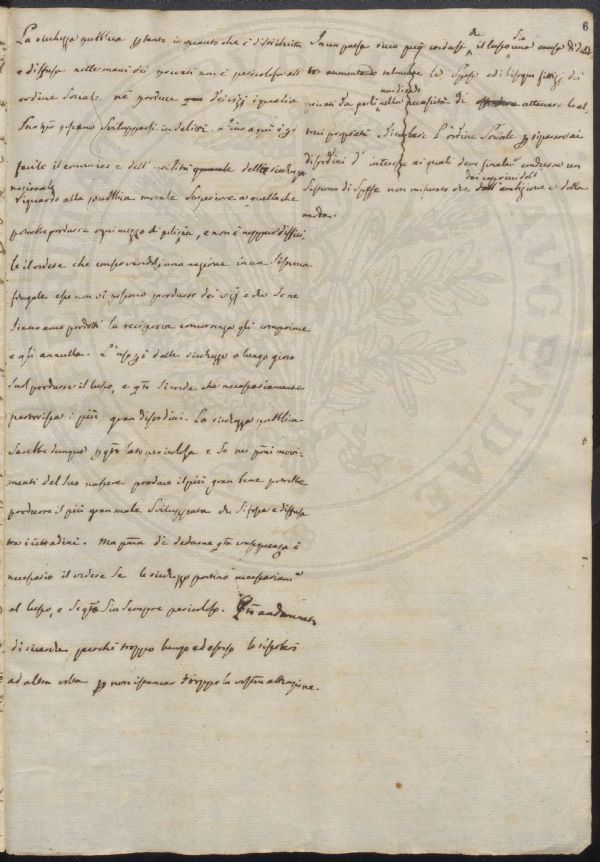 6
La ricchezza pubblica pertanto in quanto che è distribuita
e diffusa nelle mani dei privati non è pericolosa all
ordine sociale, nè produce dei vizj i quali a
suo possano svilupparsi in delitti.
facile il commercio e dell' utilità generale della ricchezza
nazionale
riguardo alla pubblica morale superiore a quella che
potrebbe produrre ogni mezzo di polizia, e non è neppur diffici-
le il vedere che conservandosi una nazione in un sistema
frugale esse non vi possono produrre dei vizj e che se ne
siano anco prodotti la reciproca concorrenza gli comprime
e gli annulla. L'uso poi delle ricchezze a lungo gioco
suol produrre il lusso, e questo si crede che necessariamente
partorisca i più gran disordini. La ricchezza pubblica
sarebbe dunque per questo lato pericolosa e se nei primi movi-
menti del suo nascere produce il più gran bene potrebbe
produrre il più gran male sviluppata che si fosse e diffusa
tra i cittadini. Ma prima di dedurne questa conseguenza è
necessario il vedere se le ricchezze portino necessariam.e
al lusso, e se questo sia sempre pericoloso. Questo
di ricerche perchè troppo lungo ed esteso lo riserberò
ad altra volta per non istancar troppo la vostra attenzione.
In un paese ricco può il lusso causa di
aumentare le spese ed i bisogni fittizj dei
mandando
privati da porli nella necessità di attaccare le al-
trui proprietà disturbare l'ordine sociale per riparare ai
disordini d' interesse ai quali deve finalm.e condurre un
dai capricci del
sistema di spesse non misurate che dall' ambizione e dalla
moda.